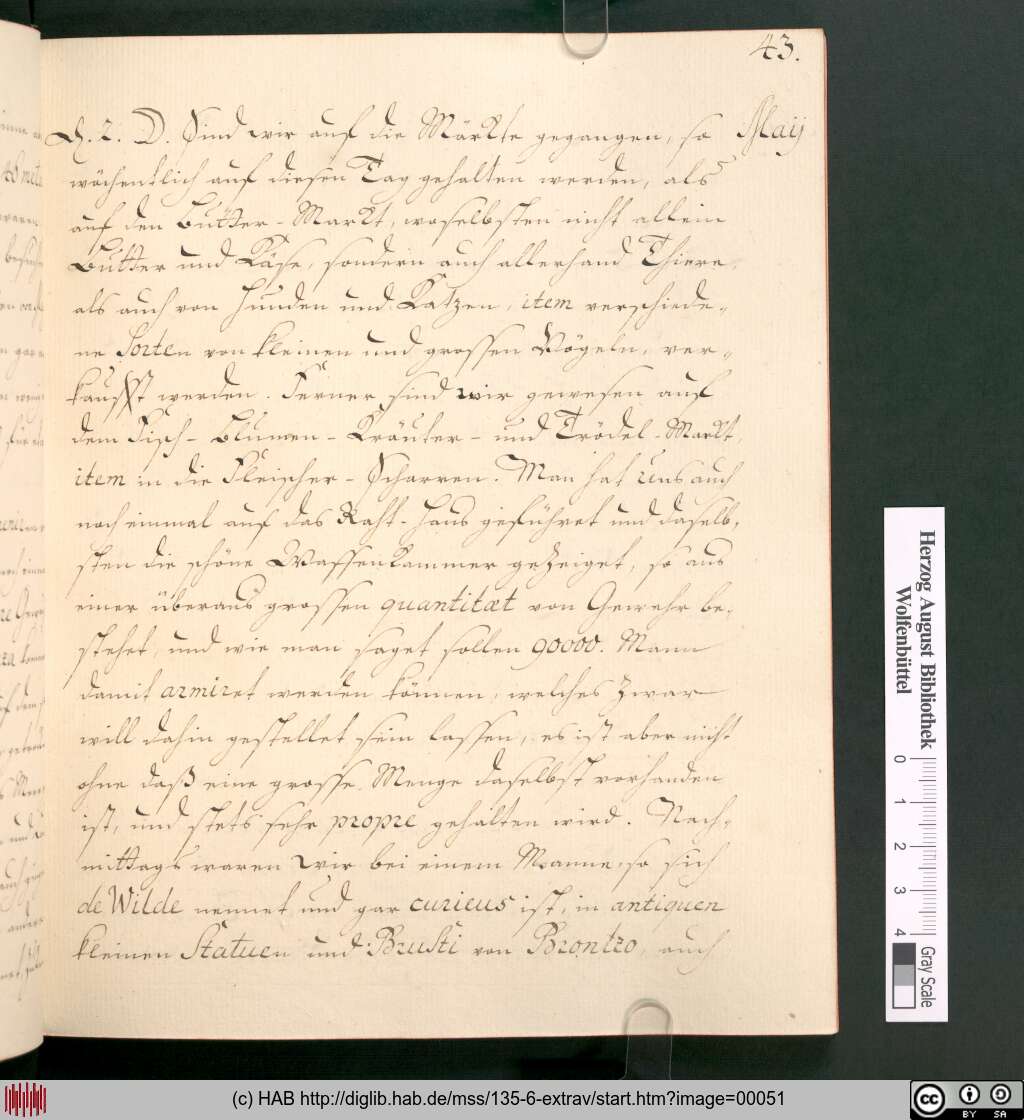 43.
D. 2. D. Sind wir auf die Märkte gegangen, so
Maij
wöchentlich auf diesen Tag gehalten werden, als
auf den Butter-Markt, woselbsten nicht allein
Butter und Käse, sondern auch allerhand Thiere,
als auch von Hunden und Katzen, item verschiede-
ne Sorten von kleinen und grossen Vögeln, ver-
kaufft werden. Ferner sind wir gewesen auf
dem Fisch- Blumen- Kräuter- und Trödel-Markt,
item in die Fleischer-Scharren. Man hat uns auch
noch einmal auf das Raht-Haus geführet und daselb-
sten die schöne Waffenkammer gezeiget, so aus
einer überaus grossen quantitæt von Gewehr be-
stehet, und wie man saget sollen 90000. Mann
damit armiret werden können, welches zwar
will dahin gestellet sein lassen, es ist aber nicht
ohne daß eine grosse Menge daselbst vorhanden
ist, und stets sehr propre gehalten wird. Nach-
mittags waren wir bei einem Manne, so sich
de Wilde nennet und gar curieus ist, in antiquen
kleinen Statuen und Brusti von Brontzo, auch
Herzog August Bibliothek
Wolfenbüttel
0 1 2 3 4
Gray Scale
(c) HAB http://diglib.hab.de/mss/135-6-extrav/start.htm?image=00051
cc BY SA